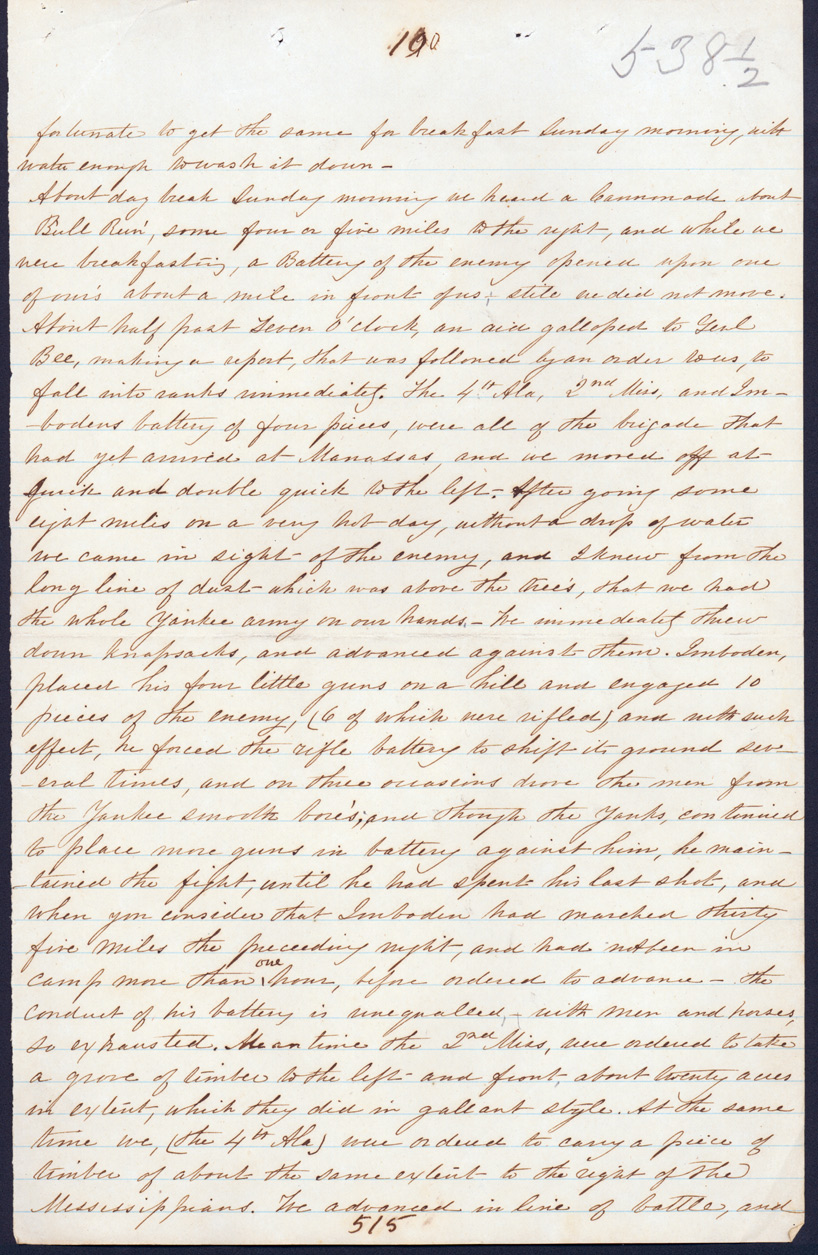 190
538 1/2
fortunate to get the same for breakfast Sunday morning, with
water enough to wash it down -
About day break Sunday morning we heard a Cannonade about
Bull Run', some four or five miles to the right, and while we
were breakfasting, a Battery of the enemy opened upon one
of our's about a mile in front of us; stile we did not move.
About half past Seven O'clock, an aid galloped to Genl
Bee, making a report, that was followed by an order to us, to
fall into ranks immediately. The 4th Ala, 2nd Miss, and Im-
-bodens battery of four pieces, were all of the brigade that
had yet arrived at Manassas, and we moved off at
quick and double quick to the left. After going some
eight miles on a very hot day, without a drop of water
we came in sight of the enemy, and I knew from the
long line of dust which was above the tree's, that we had
the whole Yankee army on our hands. - We immediately threw
down knapsacks, and advanced against them. Imboden,
placed his four little guns on a hill and engaged 10
pieces of the enemy, (6 of which were rifled) and with such
effect, he forced the rifle battery to shift its ground sev-
-eral times, and on three occasions drove the men from
the Yankee smooth bore's; and though the Yanks, continued
to place more guns in battery against him, he main-
-tained the fight, until he had spent his last shot, and
when you consider that Imboden had marched thirty
five miles the preceeding night, and had not been in
camp more than one hour, before ordered to advance - the
conduct of his battery is unequalled, - with men and horses,
so exhausted. Meantime the 2nd Miss, were ordered to take
a grove of timber to the left and front, about twenty acres
in extent, which they did in gallant style. At the same
time we, (the 4th Ala) were ordered to carry a piece of
timber of about the same extent to the right of the
Mississippians. We advanced in line of battle, and
515